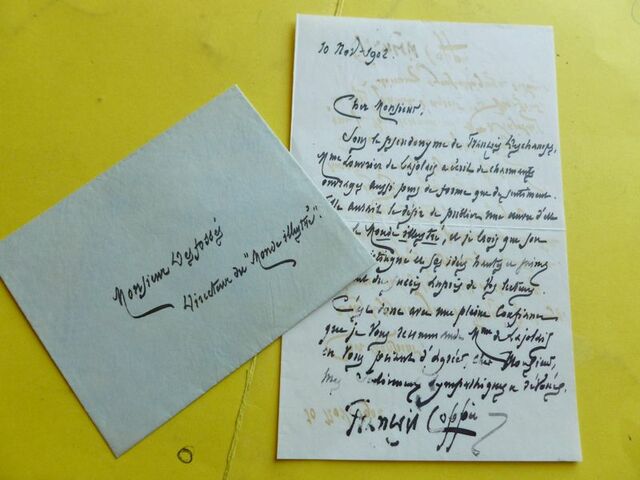 10 Nov. 1902.
Cher Monsieur,
Sous le pseudonyme de François Deschamps,
Mme Louvrier de Lajolais a écrit de charmants
ouvrages aussi purs de forme que de sentiment.
Elle aurait le désir de publier une œuvre d'elle
le Monde illustré, et je crois que son
et ses idées
succès auprès de vos lecteurs.
C'est donc avec une pleine confiance
que je vous recommande Mme de Lajolais
en vous priant d'agréer, cher Monsieur,
mes sentiments sympathiques et dévoués.
François Coppée
Monsieur Desfossés
Directeur du "Monde illustré".